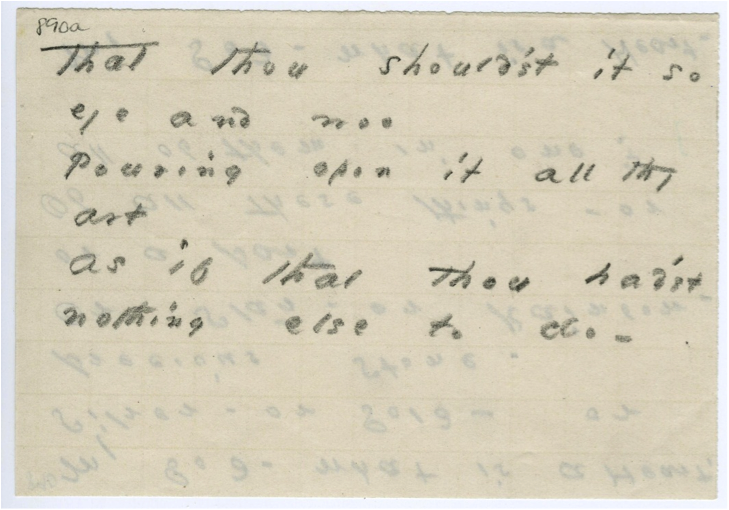 890a
That thou should'st it so
eye and woo
Pouring opon it all thy
art
As if that thou had'st
nothing else to do -